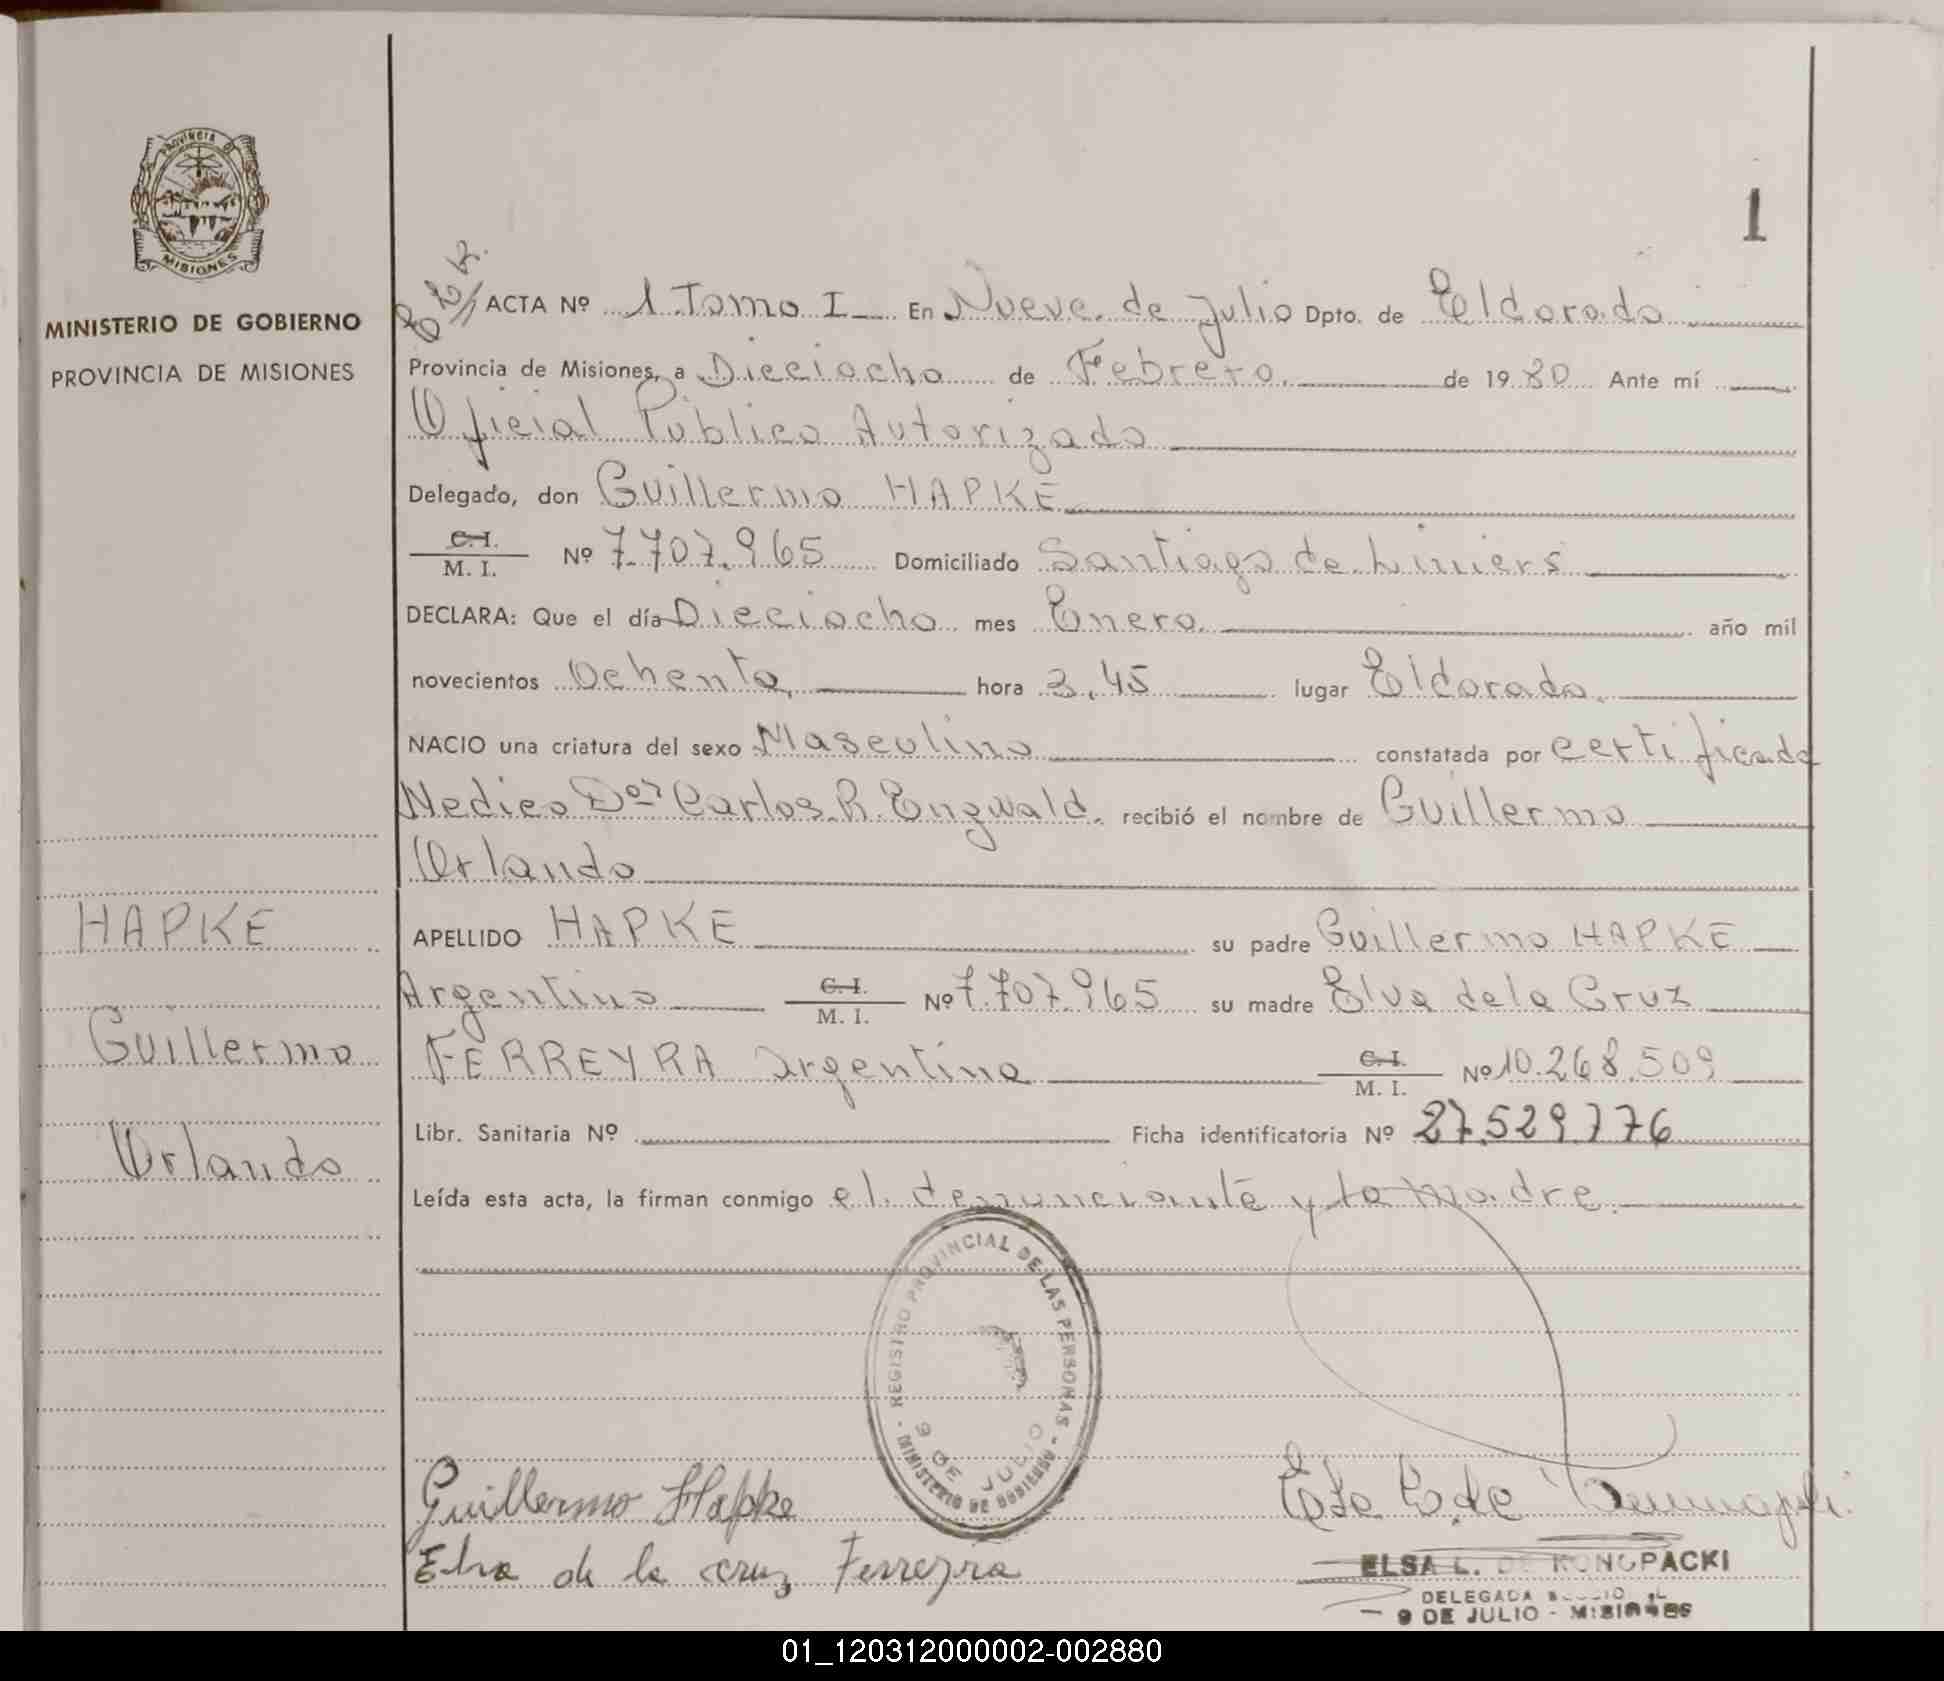 PROVINCIA DE
MISIONES
MINISTERIO DE GOBIERNO
PROVINCIA DE MISIONES
HAPKE
Guillermo
Orlando
1
ACTA Nº 1 Tomo I En Nueve de Julio Dpto. de Eldorado
Provincia de Misiones, a Dieciocho de Febrero de 1980 Ante mí
Oficial Público Autorizado
Delegado, don Guillermo HAPKE
C. I.
M. I. Nº 7.707.965 Domiciliado Santiago de Liniers
DECLARA: Que el día Dieciocho mes Enero año mil
novecientos Ochenta hora 3,45 lugar Eldorado
NACIO una criatura del sexo Masculino constatada por certificado
Medico Dor Carlos R. Engwald. recibió el nombre de Guillermo
Orlando
APELLIDO HAPKE su padre Guillermo HAPKE
Argentino C. I. M. I. Nº 7.707.965 su madre Elva de la Cruz
FERREYRA argentina C. I. M. I. Nº 10.268.509
Libr. Sanitaria Nº Ficha identificatoria Nº 27.529.776
Leída esta acta, la firman conmigo el denunciante y la madre.
REGISTRO PROVINCIAL DE LAS PERSONAS
- MINISTERIO DE GOBIERNO -
9 DE JULIO
Guillermo Hapke
Elva de la cruz Ferreyra
ELSA L. DE KONOPACKI
DELEGADA
9 DE JULIO - MISIONES
01_120312000002-002880